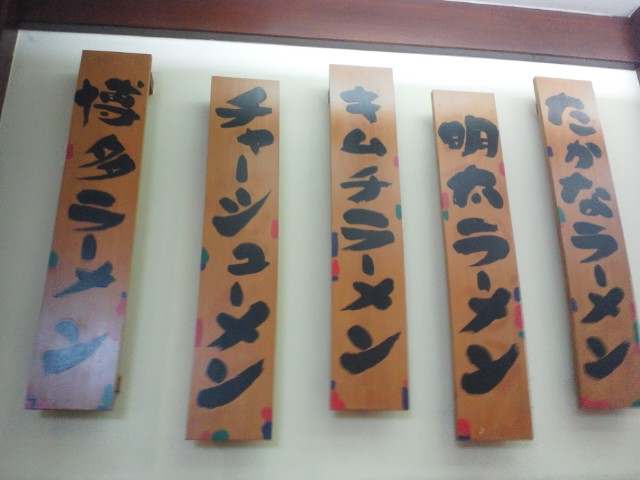 博多ラーメン
チャーシューメン
キムチラーメン
明太ラーメン
たかなラーメン